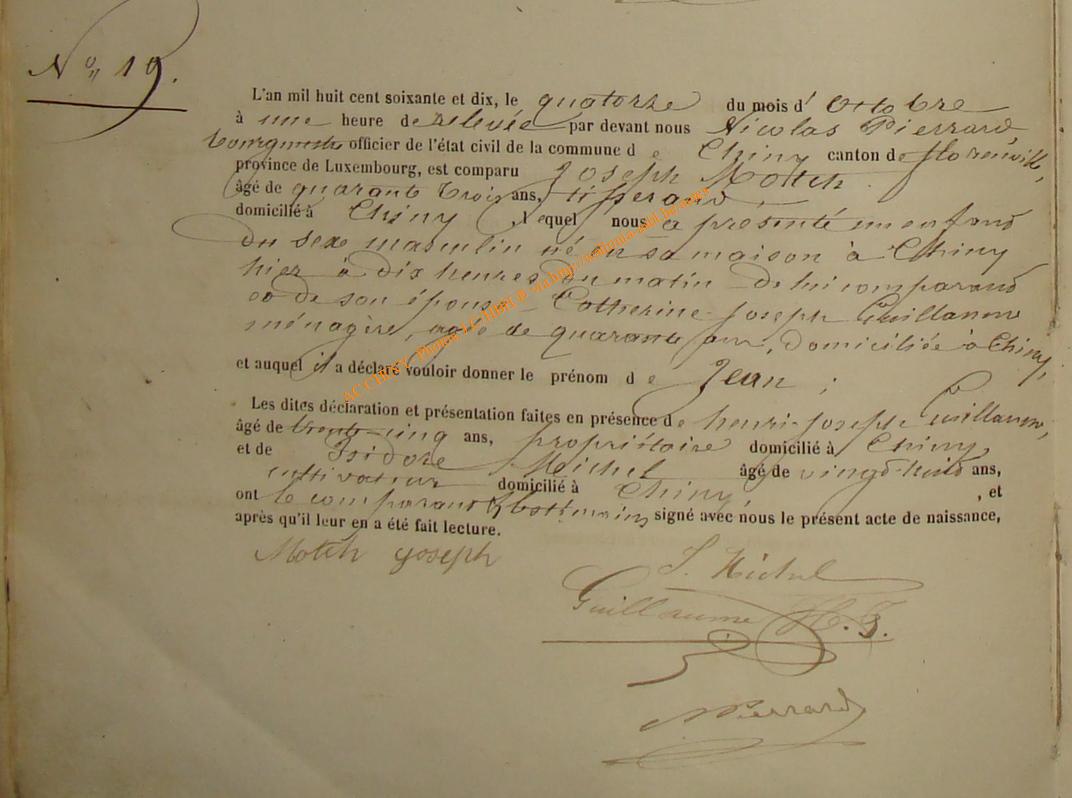 No 19.
L'an mil huit cent soixante et dix, le quatorze du mois d' Octobre
à une heure de relevée par devant nous Nicolas Pierrard,
bourgmestre officier de l'état civil de la commune de Chiny canton de florenville,
province de Luxembourg, est comparu Joseph Motch
âgé de quarante trois ans, tisserand,
domicilié à Chiny Lequel nous a présenté un enfant
du sexe masculin né en sa maison à Chiny
hier à dix heures du matin de lui comparant
et de son épouse Catherine-Joseph Guillaume
ménagère, agée de quarante ans, domiciliée à Chiny,
et auquel il a déclaré vouloir donner le prénom de Jean ;
Les dites déclaration et présentation faites en présence de henri-Joseph Guillaume,
âgé de trente-cinq ans, propriétaire domicilié à Chiny,
et de Isidore Michel âgé de vingt-huit ans,
cultivateur domicilié à Chiny, , et
ont le comparant & les témoins signé avec nous le présent acte de naissance,
après qu'il leur en a été fait lecture.
Motch Joseph
I. Michel
Guillaume H. J.
N Pierrard
AC CHINY, Photos LC-HMH @